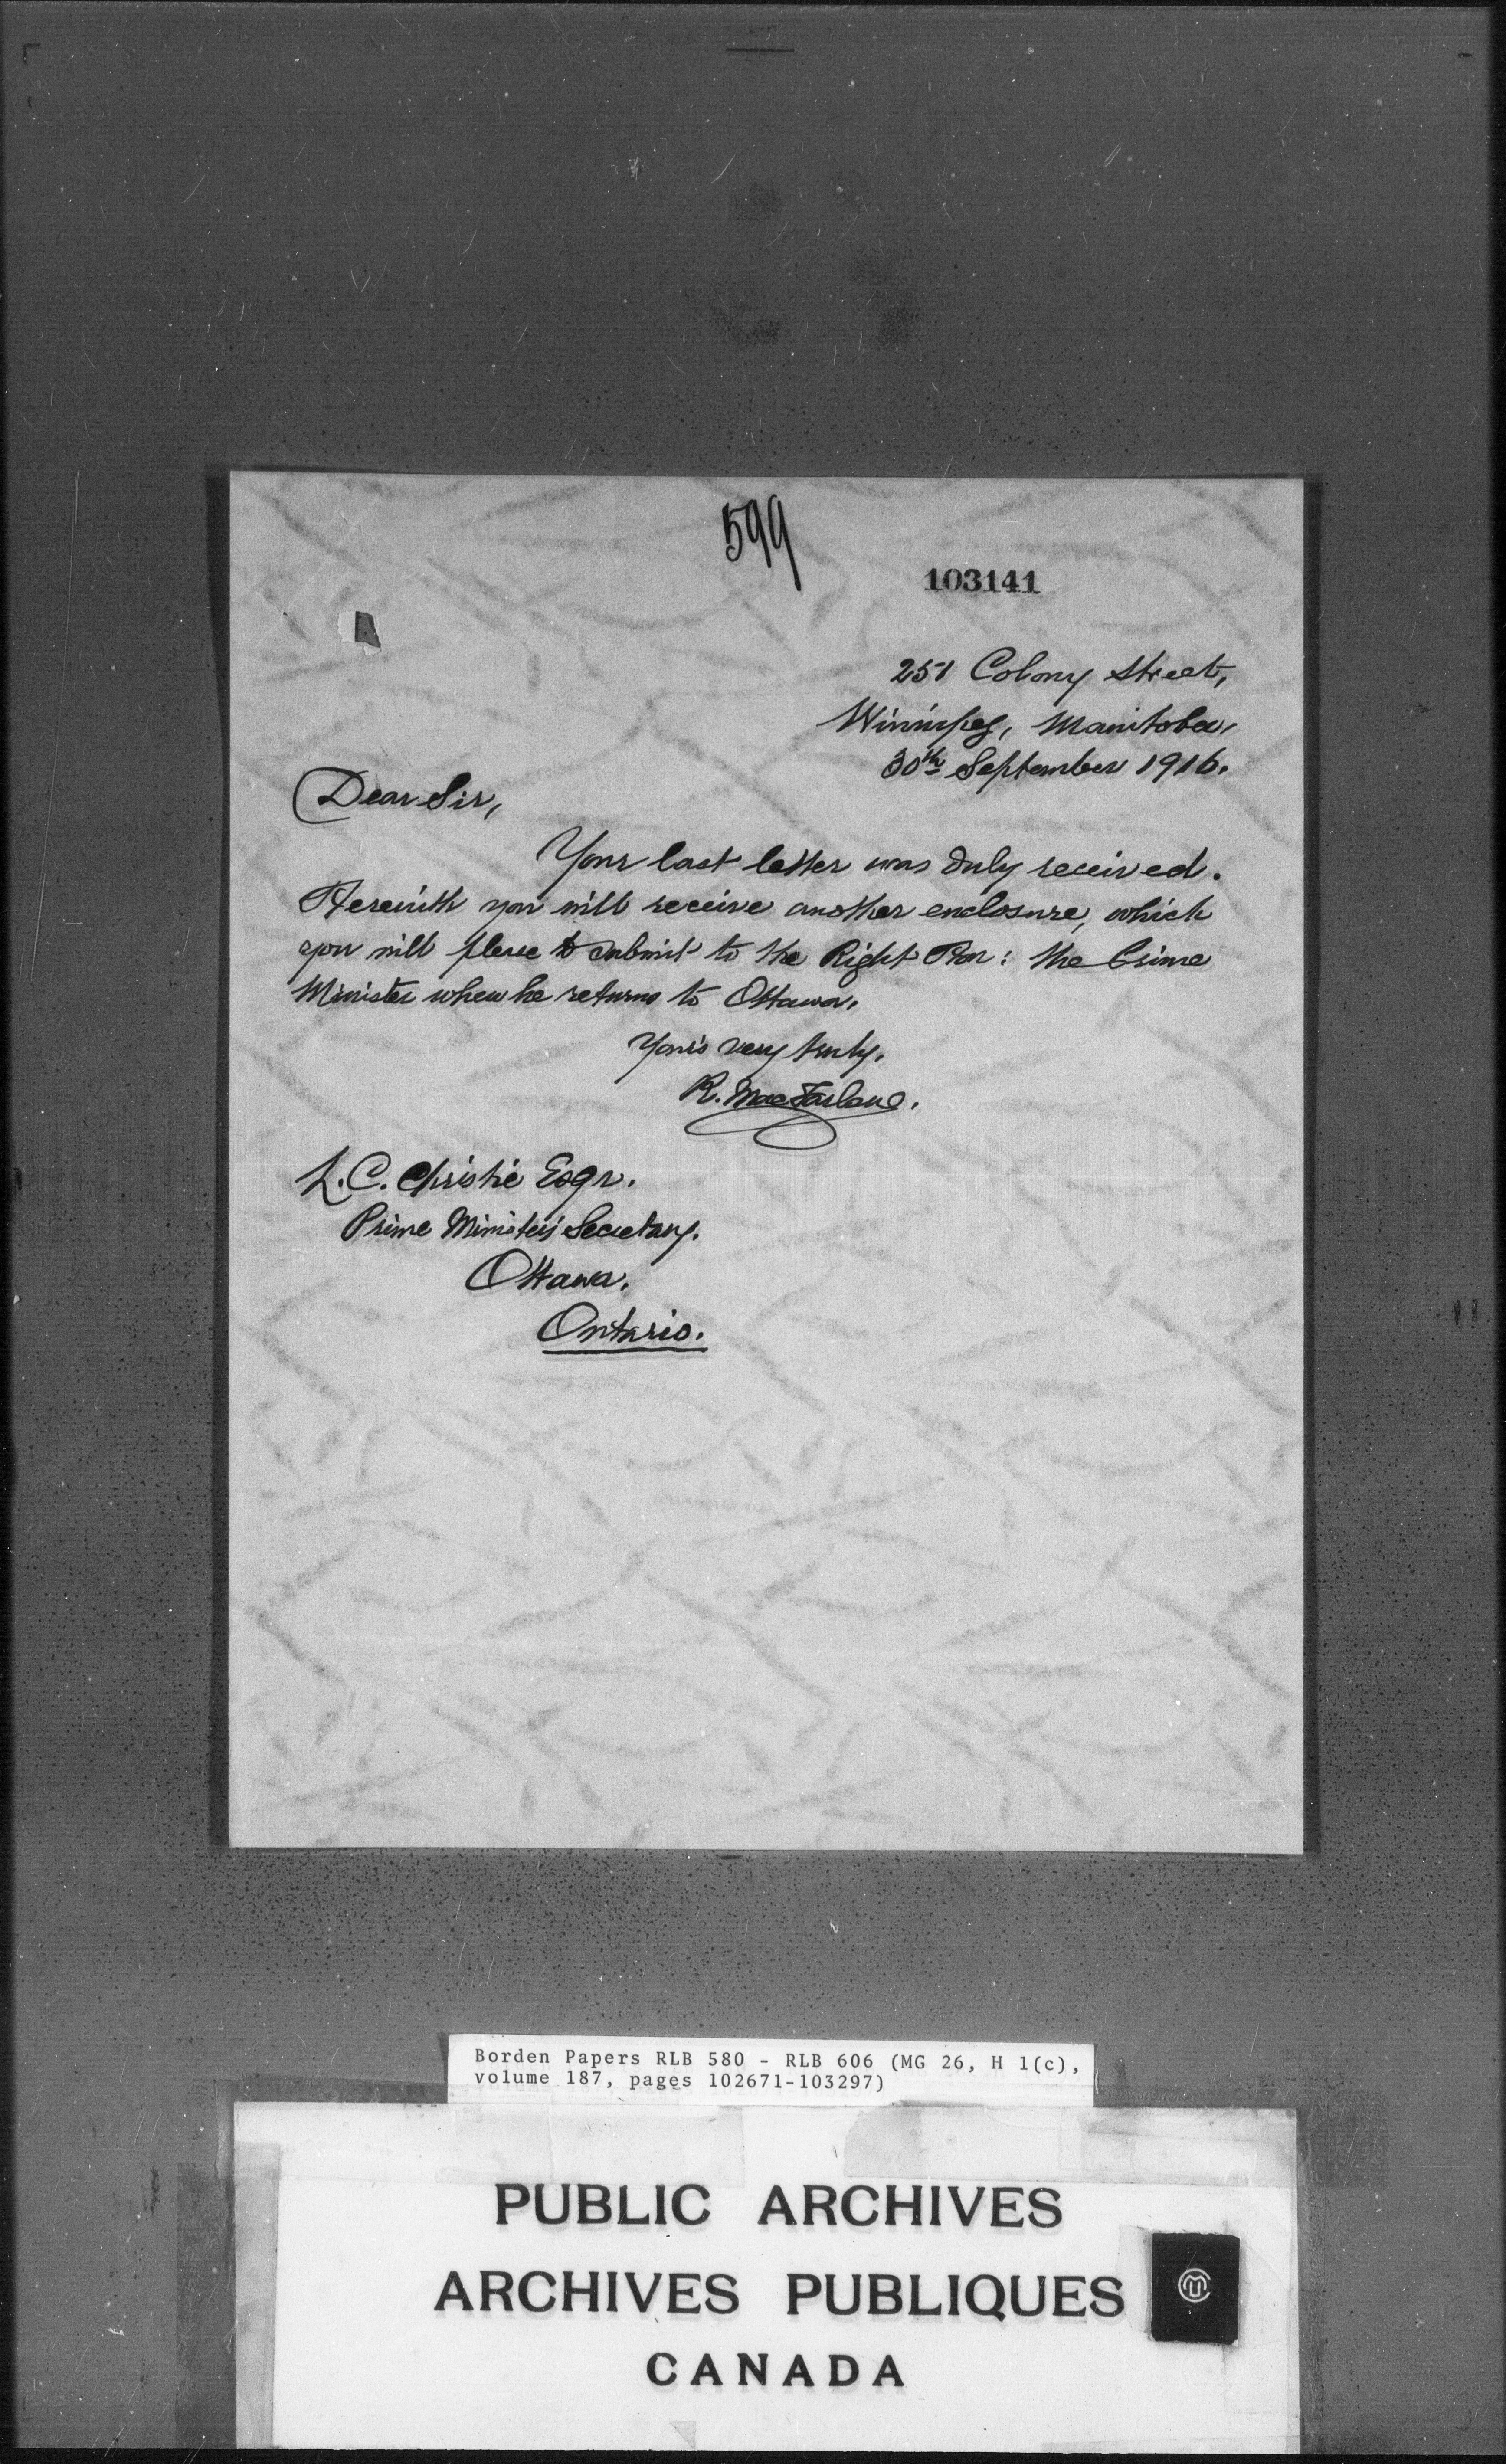 599
103141
251 Colony Street,
Winnipeg, Manitoba,
30th September 1916.
Dear Sir,
Your last letter was duly received.
Herewith you will receive another enclosure, which
you will please to submit to the Right Hon: the Prime
Minister when he returns to Ottawa.
Yours very truly,
R. MacFarlane.
L. C. Christie Esqr.
Prime Minister's Secretary.
Ottawa.
Ontario.
Borden Papers RLB 580 - RLB 606 (MG 26, H 1(c),
volume 187, pages 102671-103297)
PUBLIC ARCHIVES
ARCHIVES PUBLIQUES
CANADA